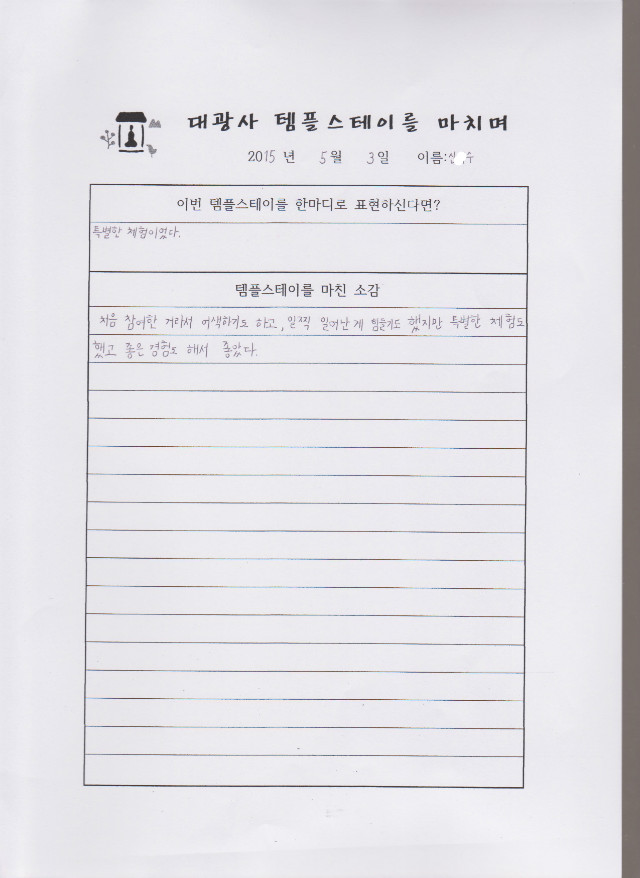 대광사 템플스테이를 마치며
2015 년 5 월 3 일 이름:신 수
이번 템플스테이를 한마디로 표현하신다면?
특별한 체험이였다.
템플스테이를 마친 소감
처음 참여한 거라서 어색하기도 하고, 일찍 일어난 게 힘들기도 했지만 특별한 체험도
했고 좋은 경험도 해서 좋았다.